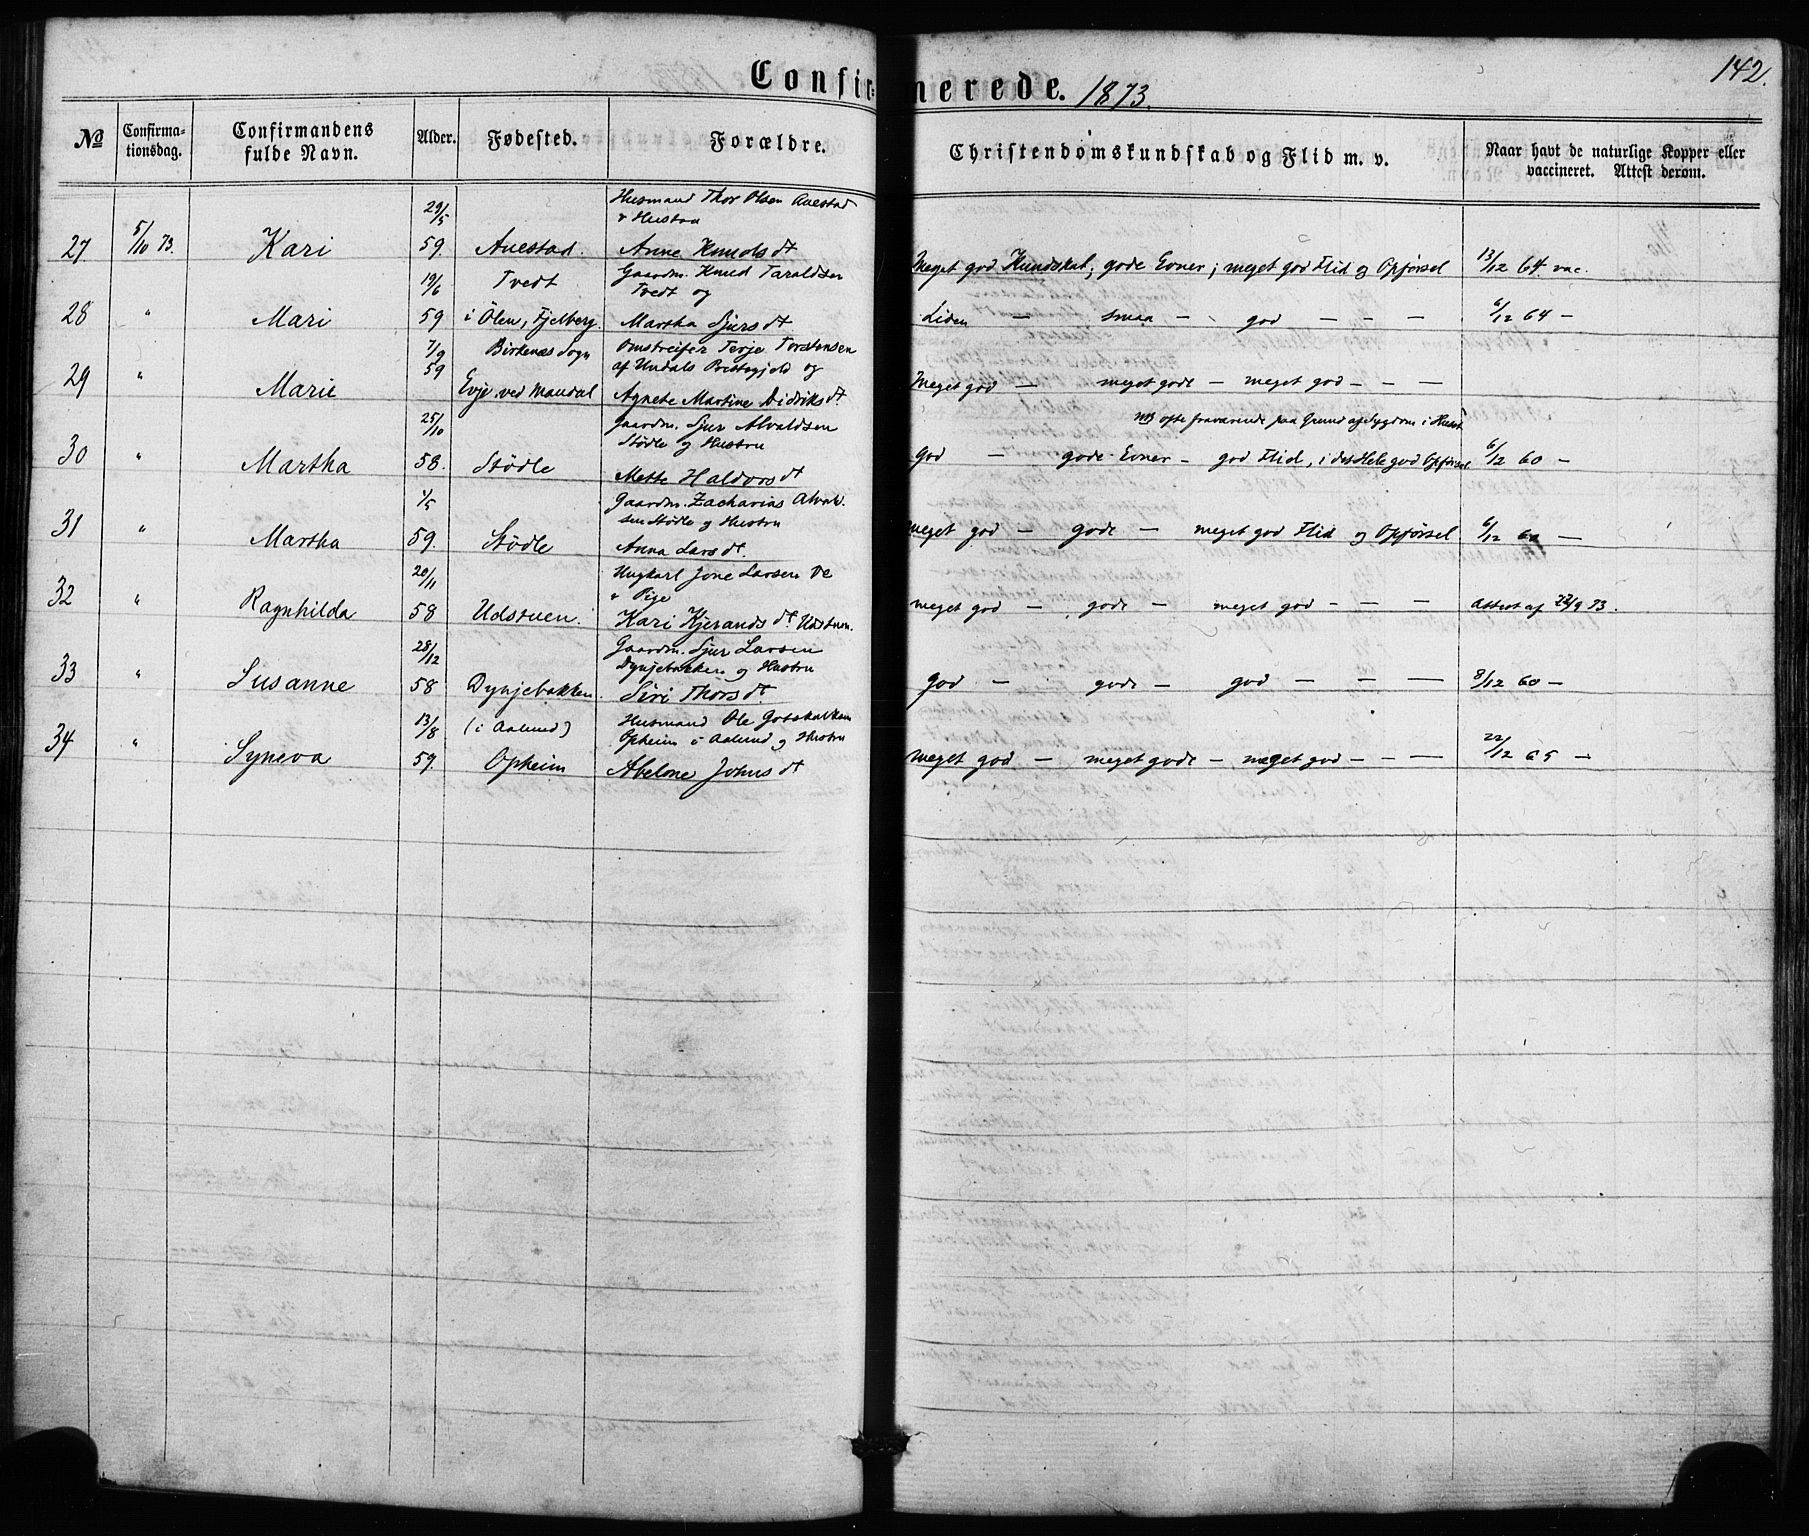 142.
Confirmerede. 1873.
No
Confirma-
tionsdag.
Confirmandens
fulde Navn.
Alder.
Fødested.
Forældre.
Christendomskundskab og Flid m. v.
Naar havt de naturlige Kopper eller
vaccineret. Attest derom.
29/5 Husmand Thor Olsen Auestad
& Hustru
27. 5/10 73. Kari 59. Auestad. Anne Knudsdt Meget god Kundskab, gode Evner; meget god Flid og Opførsel 13/12 64. vac.
19/6 Tvedt Gaardm. Knud Taraldsen
Tvedt og
28 " Mari 59 i Ølen, Fjelberg. Martha Sjursdt Liden — smaa — god — — — 6/12 64 —
7/9 Birkenæs Sogn Omstreifer Terje Torstensen
59 af Undals Prstegjeld og
29 " Marie Evje ved Mandal Agnete Martine Didriksdt. Meget god — meget gode — meget god — — —
25/10 Gaardm. Sjur Alvaldsen NB ofte fraværende paa Grund af Sygdom i Huset
Stødle og Hustru
30 " Martha 58. Stødle Mette Haldorsdt god — gode Evner — god Flid, i det Hele god Opførsel 6/12 60 —
4/5 Gaardm. Zacharias Alvald-
sen Stødle og Hustru
31 " Martha 59. Stødle Anna Larsdt. meget god — gode — meget god Flid og Opførsel 6/12 60 —
20/11 Ungkarl Jone Larsen De
" Pige
32 " Ragnhilda 58 Udstuen. Kari Kjerandsdt. Udstuen. meget god — gode — meget god — — — Attest af 22/9 73.
28/12 Gaardm. Sjur Larsen
Dynjebakken og Hustru
33 " Susanne 58 Dynjebakken. Siri Thorsdt god — gode — god — — — 8/12 60 —
13/8 (i Aalund) Husmand Ole Gotskalksen
Opheim i Aalund og Hustru
34 " Syneva 59. Opheim Abelone Johnsdt meget god — meget gode — meget god — — — 22/12 65 —